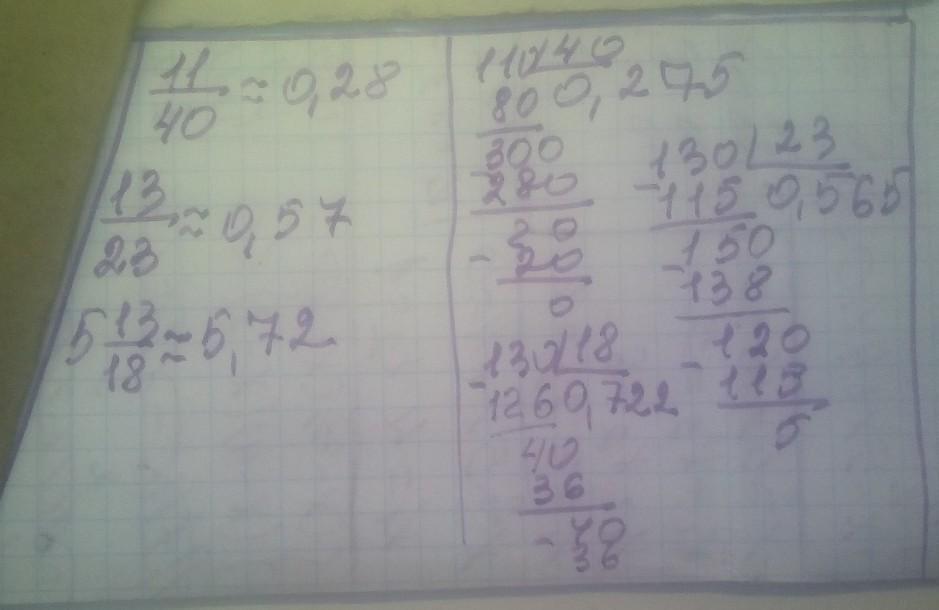 11/40 ≈ 0,28
13/23 ≈ 0,57
5 13/18 ≈ 5,72
110 | 40
80 0,275
300
280
20
- 20
0
130 | 18
- 126 0,722
40
36
- 40
36
130 | 23
- 115 0,565
150
- 138
120
- 115
5